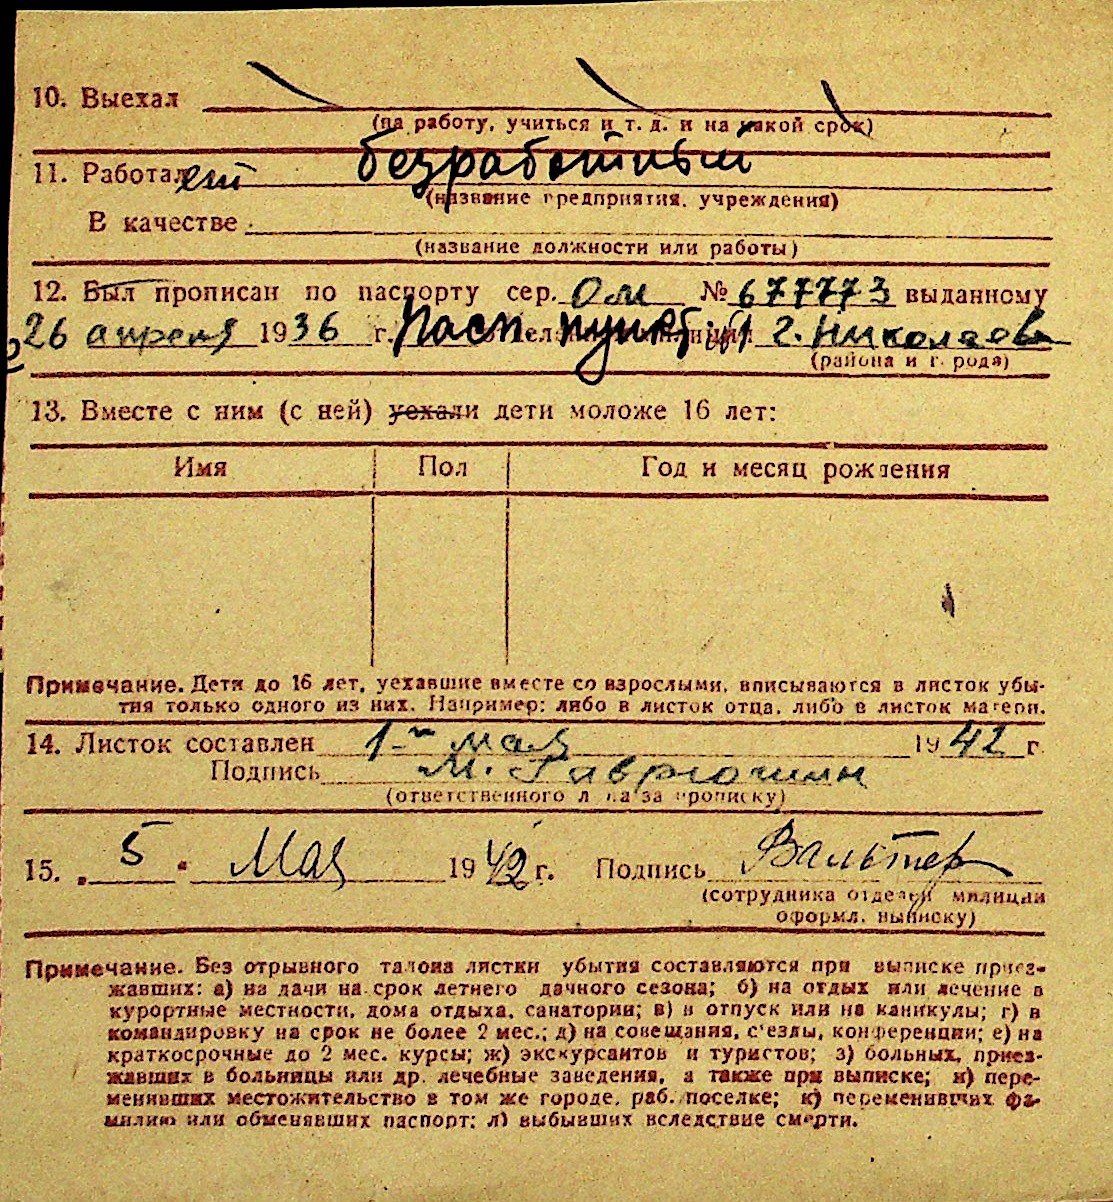 10. Выехал
(на работу, учиться и т. д. и на какой срок)
11. Работает безработный
(название предприятия, учреждения)
В качестве
(название должности или работы)
12. Был прописан по паспорту сер. ОМ № 677773 выданному
26 апреля 1936 г. Пасп. пункт г. Николаева
(района и города)
13. Вместе с ним (с ней) уехали дети моложе 16 лет:
Имя Пол Год и месяц рождения
Примечание. Дети до 16 лет, уехавшие вместе со взрослыми, вписываются в листок убы-
тия только одного из них. Например: либо в листок отца, либо в листок матери.
14. Листок составлен 1-го мая 1942 г.
Подпись М. Гаврюшин
(ответственного лица за прописку)
15. „5" Мая 1942 г. Подпись Вальтер
(сотрудника отделен милиции
оформл. выписку)
Примечание. Без отрывного талона листки убытия составляются при выписке приез-
жавших: а) на дачи на срок летнего дачного сезона; б) на отдых или лечение в
курортные местности, дома отдыха, санатории; в) в отпуск или на каникулы; г) в
командировку на срок не более 2 мес.; д) на совещания, с'езды, конференции; е) на
краткосрочные до 2 мес. курсы; ж) экскурсантов и туристов; з) больных, приез-
жавших в больницы или др. лечебные заведения, а также при выписке; и) пере-
менивших местожительство в том же городе, раб. поселке; к) переменивших фа-
милию или обменявших паспорт; л) выбывших вследствие смерти.